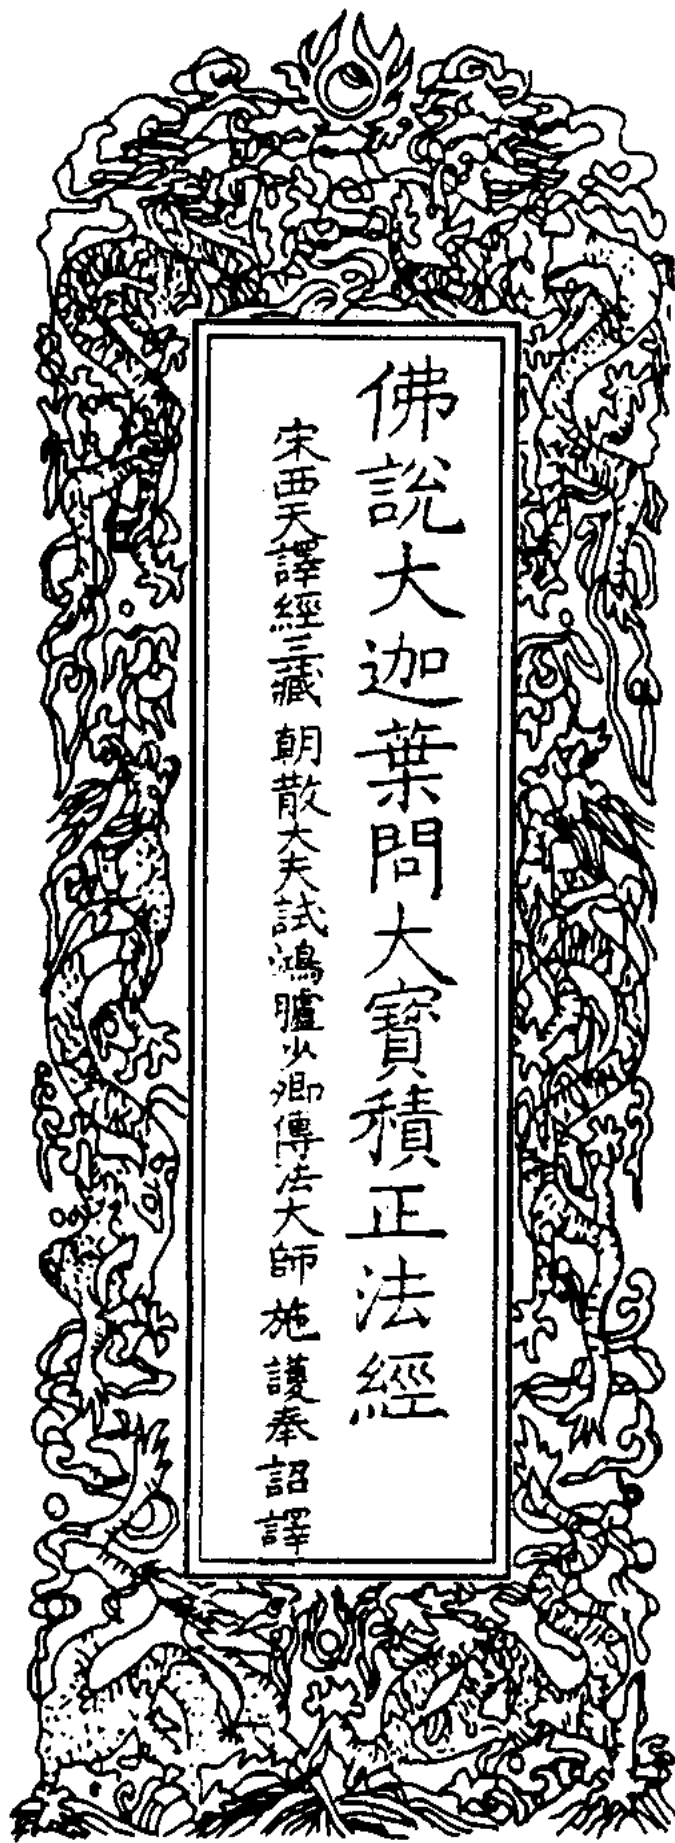 佛說大迦葉問大寶積正法經
宋西天譯經三藏 朝散大夫試鴻臚少卿傳法大師 施護奉 詔譯